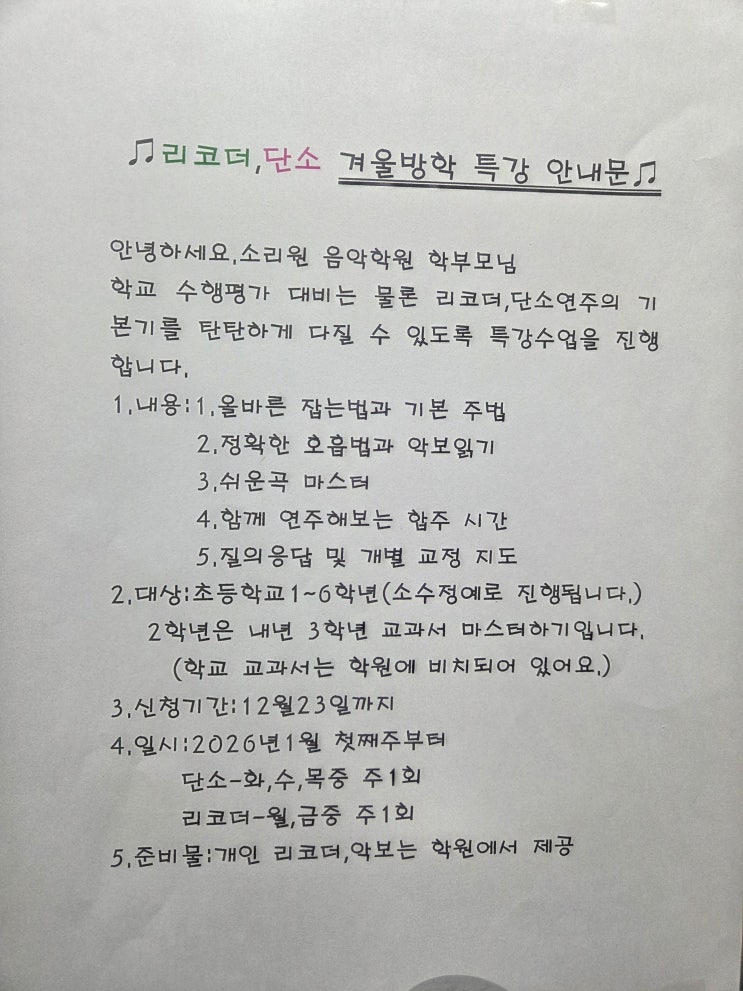 ♫리코더,단소 겨울방학 특강 안내문♫
안녕하세요,소리원 음악학원 학부모님
학교 수행평가 대비는 물론 리코더,단소연주의 기
본기를 탄탄하게 다질 수 있도록 특강수업을 진행
합니다.
1.내용:1.올바른 잡는법과 기본 주법
2.정확한 호흡법과 악보읽기
3.쉬운곡 마스터
4.함께 연주해보는 합주 시간
5.질의응답 및 개별 교정 지도
2.대상:초등학교1~6학년(소수정예로 진행됩니다.)
2학년은 내년 3학년 교과서 마스터하기입니다.
(학교 교과서는 학원에 비치되어 있어요.)
3.신청기간:12월23일까지
4.일시:2026년1월 첫째주부터
단소-화,수,목중 주1회
리코더-월,금중 주1회
5.준비물:개인 리코더,악보는 학원에서 제공